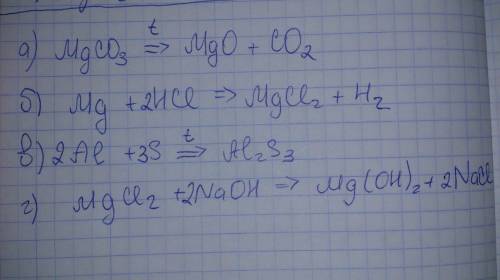 а) MgCO₃ =>ᵗ MgO + CO₂
б) Mg + 2HCl => MgCl₂ + H₂
в) 2Al + 3S =>ᵗ Al₂S₃
г) MgCl₂ + 2NaOH => Mg(OH)₂ + 2NaCl